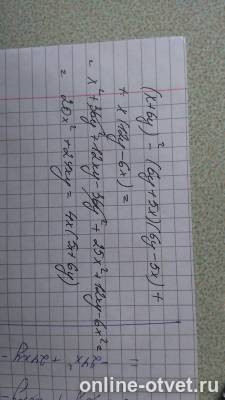 (x+6y)² - (6y+5x)(6y-5x) +
+ x(12y-6x) =
= x²+36y²+12xy-36y²+25x²+12xy-6x²=
= 20x²+24xy = 4x(5x+6y)
online-otvet.ru